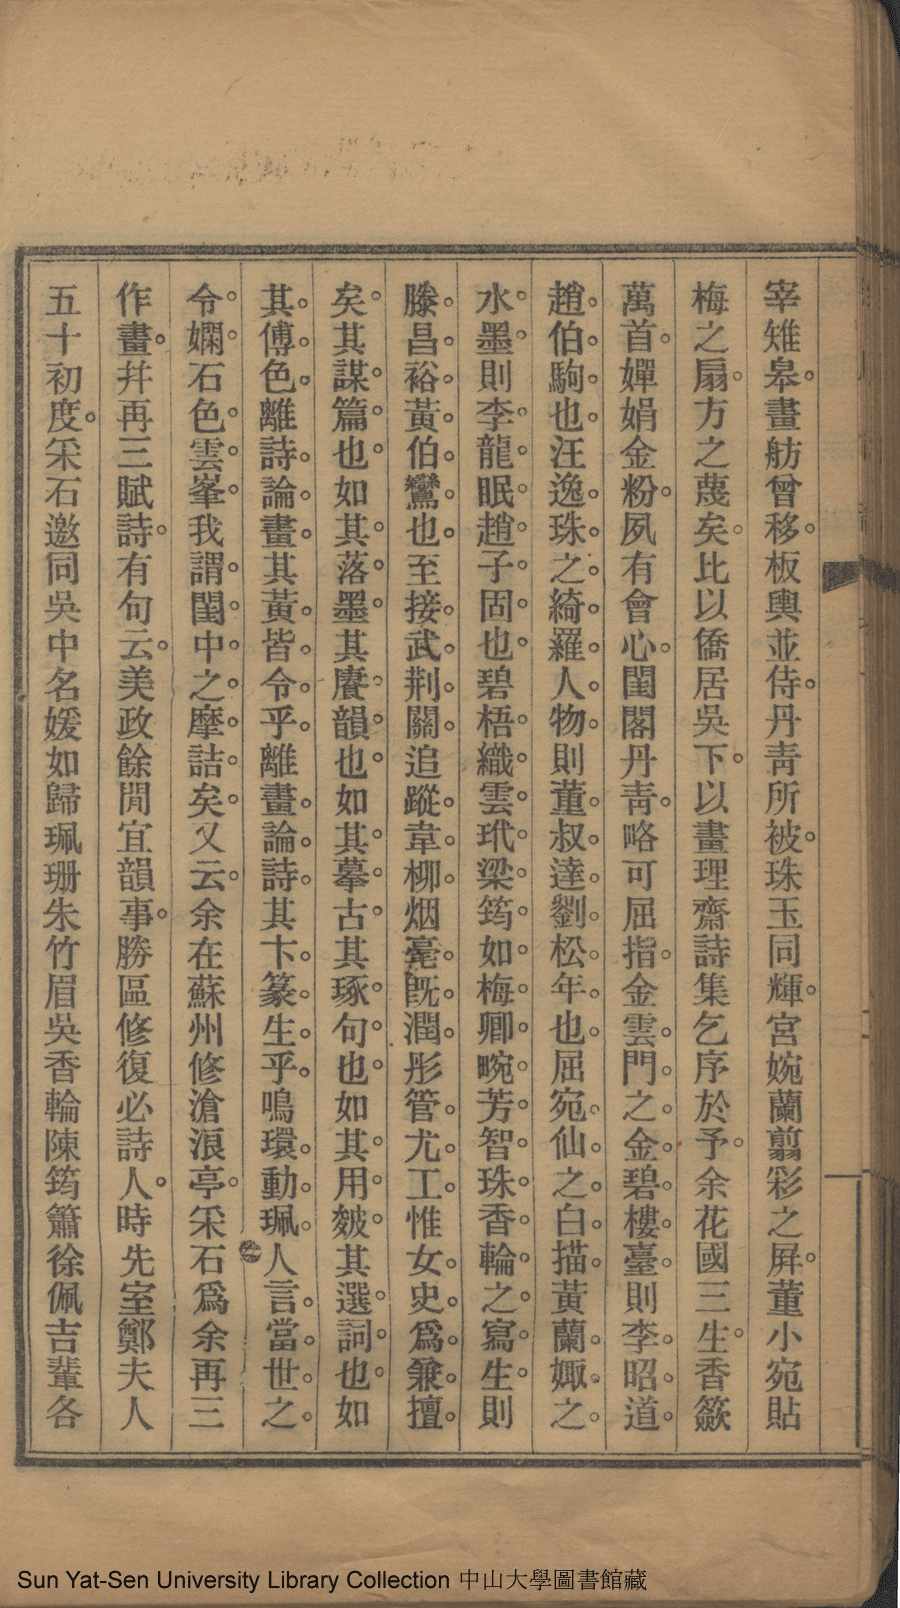 宰雉皋畫舫曾移板輿並侍丹靑所被珠玉同輝宮婉蘭翦彩之屛董小宛貼
梅之扇方之蔑矣比以僑居吳下以畫理齋詩集乞序於予余花國三生香簽
萬首嬋娟金粉夙有會心閨閣丹靑略可屈指金雲門之金碧樓臺則李昭道
趙伯駒也汪逸珠之綺羅人物則董叔達劉松年也屈宛仙之白描黃蘭娵之
水墨則李龍眠趙子固也碧梧織雲玳梁筠如梅卿畹芳智珠香輪之寫生則
滕昌裕黃伯鸞也至接武荆關追蹤韋栁烟毫旣潤彤管尤工惟女史爲兼擅
矣其謀篇也如其落墨其賡韻也如其摹古其琢句也如其用皴其選詞也如
其傅色離詩論畫其黃皆令乎離畫論詩其卞篆生乎鳴環動珮人言當世之
令嫻石色雲峯我謂閨中之摩詰矣又云余在蘇州修滄浪亭采石爲余再三
作畫幷再三賦詩有句云美政餘閒宜韻事勝區修復必詩人時先室鄭夫人
五十初度采石邀同吳中名媛如歸珮珊朱竹眉吳香輪陳筠簫徐佩吉輩各
Sun Yat-Sen University Library Collection 中山大學圖書館藏